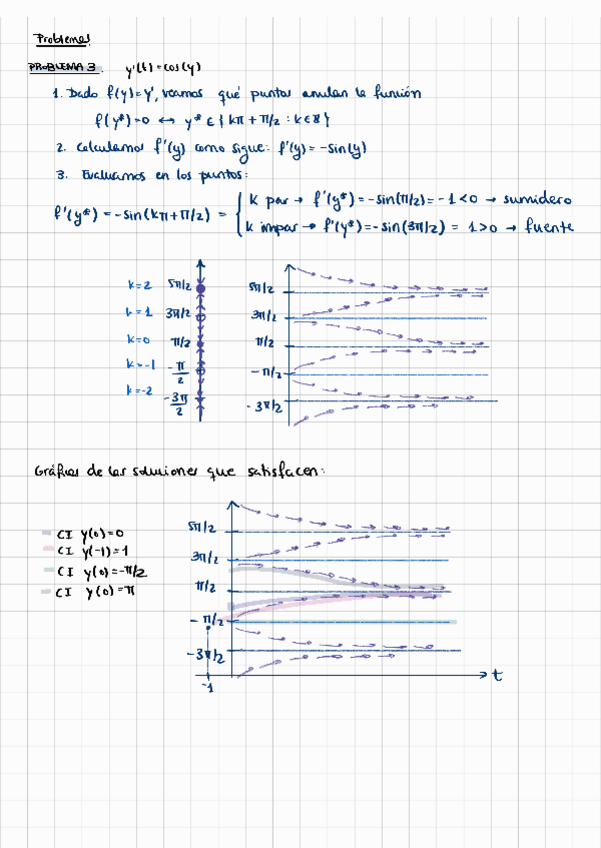 Problemas
PROBLEMA 3. y'(t) = cos(y)
1. Dado f(y)=y', veamos qué puntos anulan la función
f(y*)=0 ↔ y* ∈ { kπ + π/2 : k ∈ ℤ }
2. Calculamos f'(y) como sigue: f'(y) = -sin(y)
3. Evaluamos en los puntos:
f'(y*) = -sin(kπ+π/2) = { k par → f'(y*) = -sin(π/2) = -1 < 0 → sumidero
k impar → f'(y*) = -sin(3π/2) = 1 > 0 → fuente
k=2 5π/2 5π/2
k=1 3π/2 3π/2
k=0 π/2 π/2
k=-1 -π/2 -π/2
k=-2 -3π/2 -3π/2
Gráficas de las soluciones que satisfacen:
5π/2
CI y(0)=0
CI y(-1)=1 3π/2
CI y(0)=-π/2
CI y(0)=π π/2
-π/2
-3π/2
t
-1